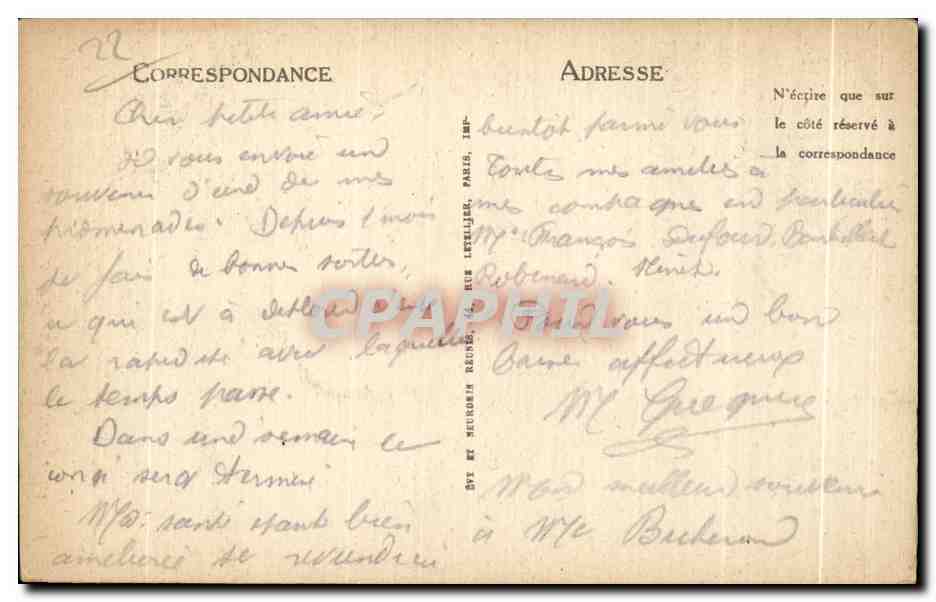 22
CORRESPONDANCE
Cher petite amie!
Je vous envoie un
souvenir d'une de mes
promenades. Depuis 1 mois
je fais de bonnes sorties,
ce qui est à déplorer c'est
la rapidité avec laquelle
le temps passe.
Dans une semaine ce
congé sera terminé
Ma santé étant bien
améliorée je reviendrai
ÉVY ET NEURDEIN RÉUNIS, 44, RUE LETELLIER, PARIS, IMP-
ADRESSE
N'écrire que sur
le côté réservé à
la correspondance
bientôt parmi vous
Toutes mes amitiés à
mes compagnes en particulier
François Dufour
Robineau
Pour vous un bon
baiser affectueux
M
Mon meilleur souvenir
à
CPAPHIL